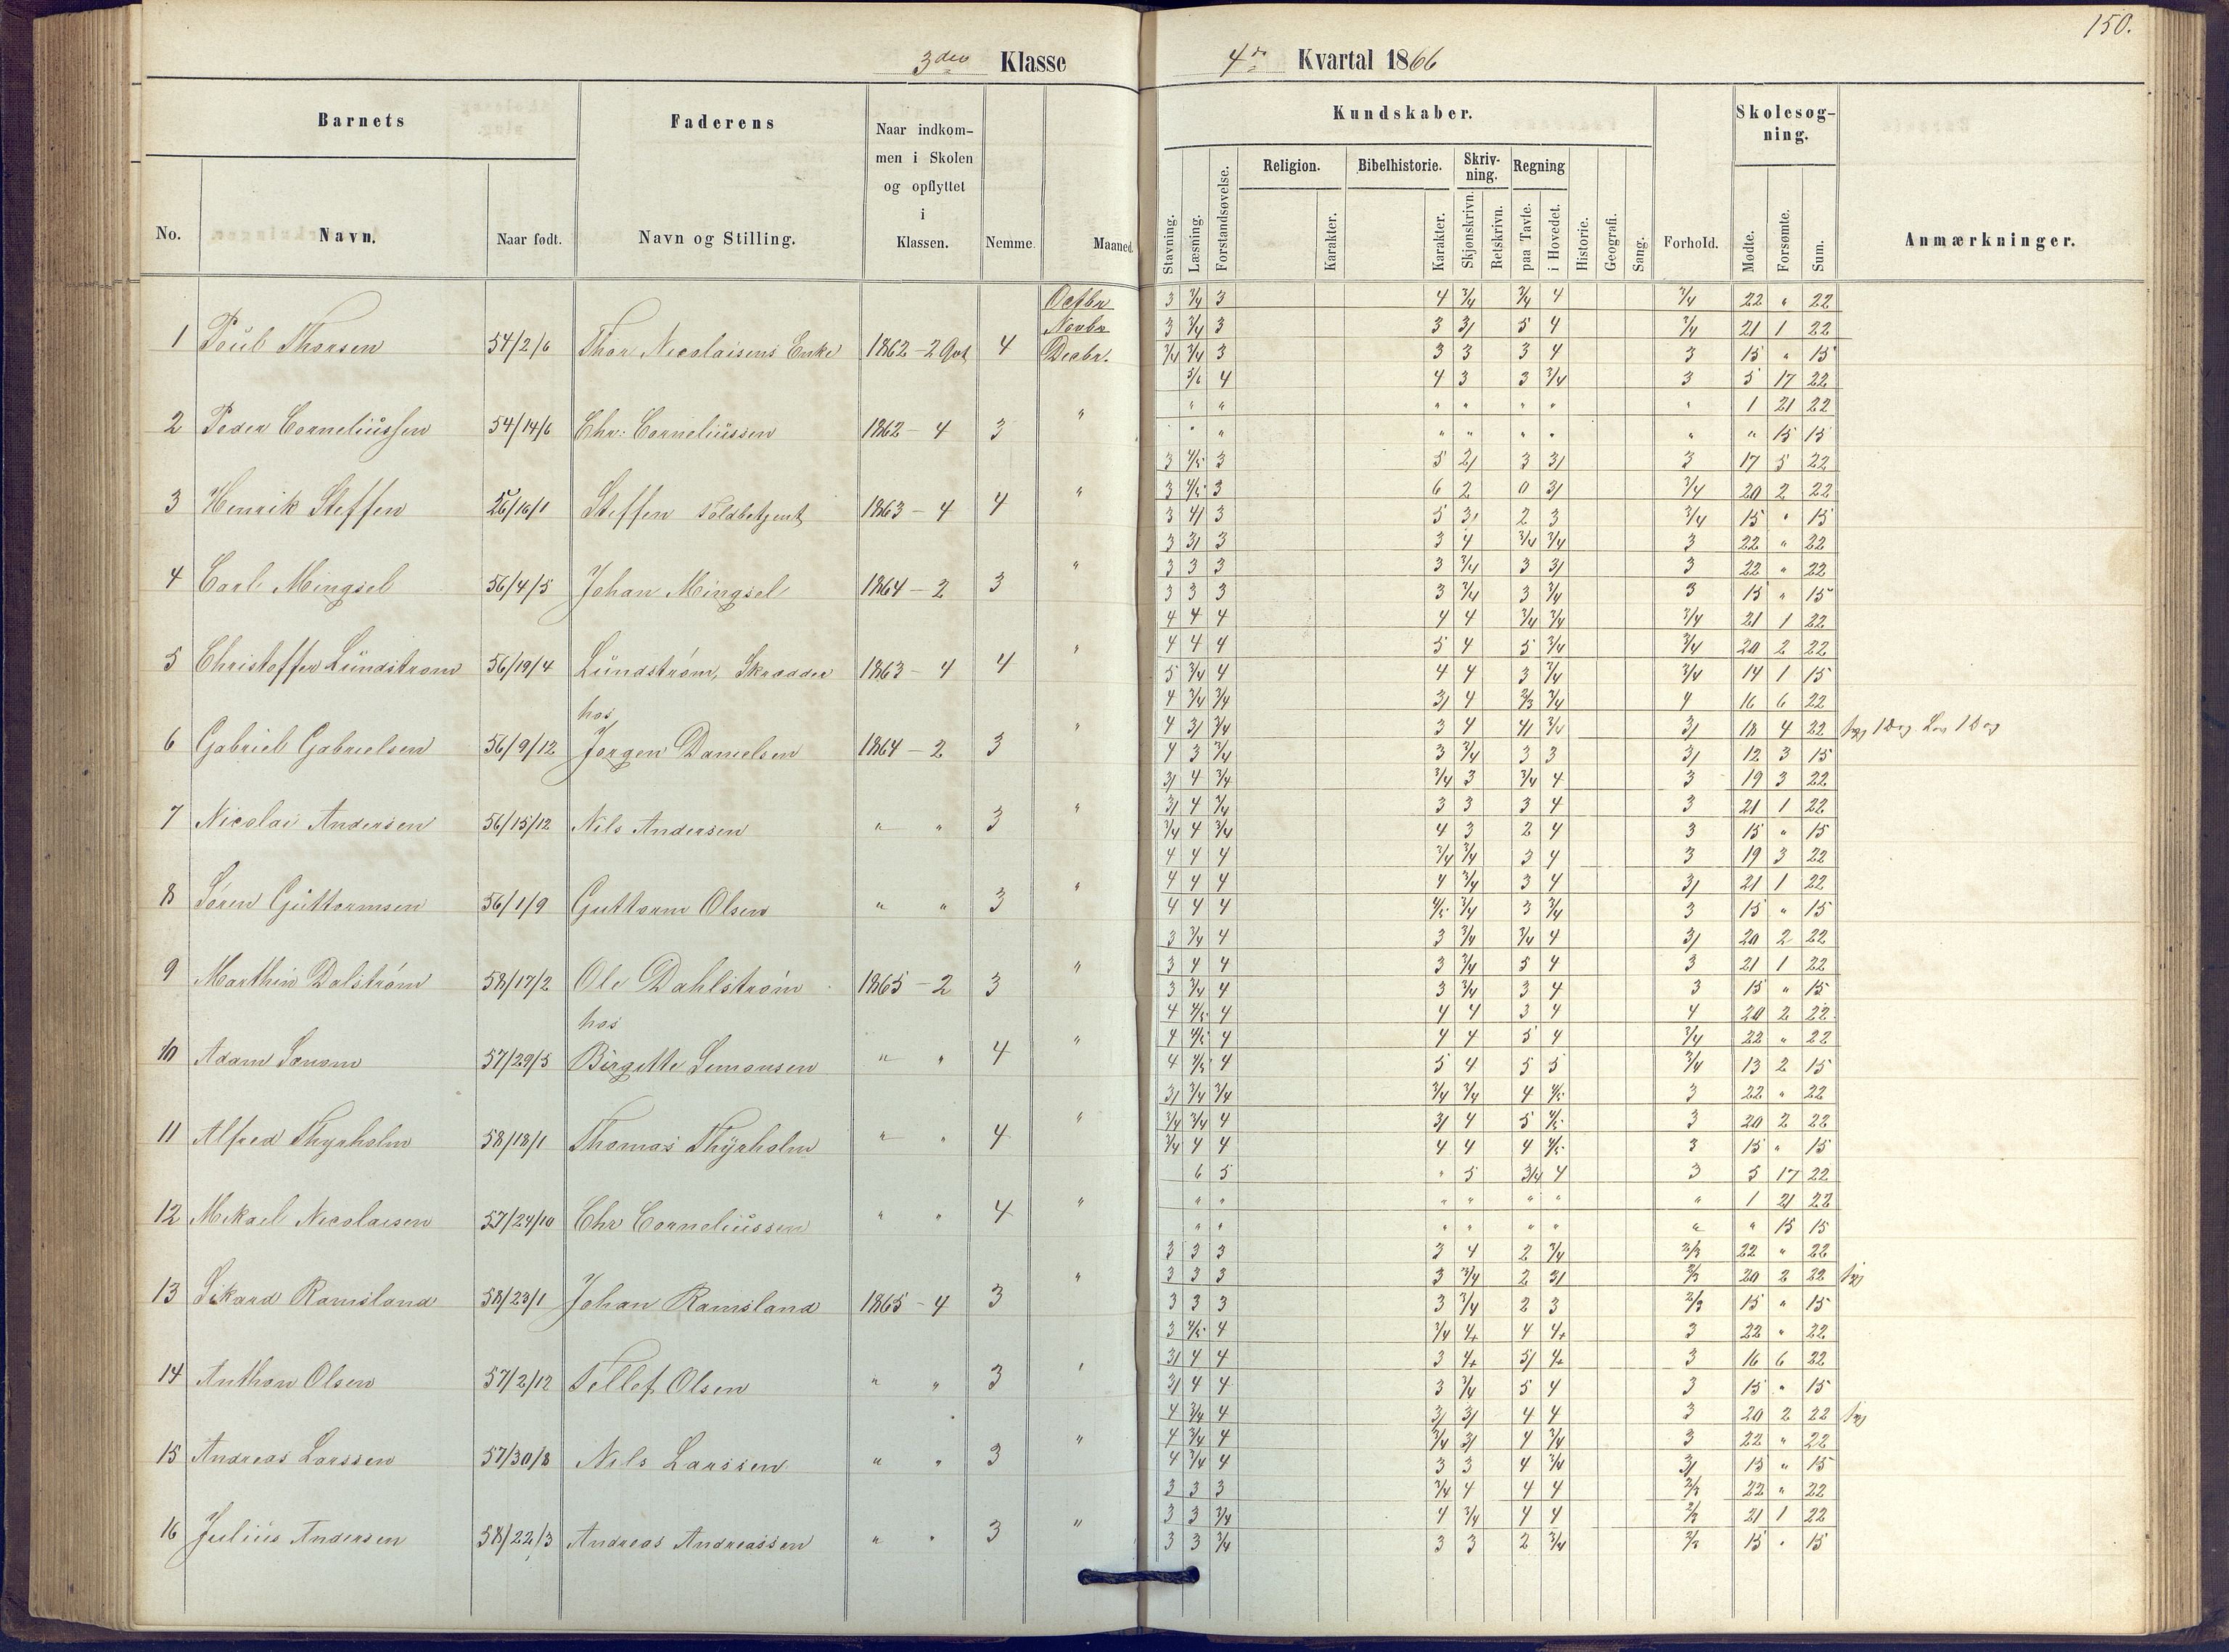 150.
3die Klasse
4de Kvartal 1866
Barnets
Faderens
Naar indkom-
men i Skolen
og opflyttet
i
Klassen.
No.
Navn.
Naar født.
Navn og Stilling.
Nemme
Maaned.
Kundskaber.
Skolesøg-
ning.
Religion.
Bibelhistorie.
Skriv-
ning.
Regning
Stavning.
Læsning.
Forstandsøvelse.
Karakter.
Karakter.
Skjønskrivn.
Retskrivn.
paa Tavle.
i Hovedet.
Historie.
Geografi.
Sang.
Forhold.
Mødte.
Forsømte.
Sum.
Anmærkninger.
Octbr
Novbr
1 Poul Thorsen 54/2/6 Thor Nicolaisens Enke 1862 – 2 Qvt 4 Decbr.
2 Peder Corneliussen 54/14/6 Chr. Corneliussen 1862 – 4 3 "
3 Henrik Steffen 56/16/1 Steffen Toldbetjent 1863 – 4 4 "
4 Carl Mingsel 56/4/5 Johan Mingsel 1864 – 2 3 "
5 Christoffer Lundstrøm 56/19/4 Lundstrøm, Skrædder 1863 – 4 4 "
hos
6 Gabriel Gabrielsen 56/9/12 Jørgen Danielsen 1864 – 2 3 "
7 Nicolai Andersen 56/15/12 Nils Andersen " " 3 "
8 Søren Guttormsen 56/1/9 Guttorm Olsen " " 3 "
9 Marthin Dalstrøm 58/17/2 Ole Dahlstrøm 1865 – 2 3 "
hos
10 Adam 57/29/5 Birgitte Simonsen " " 4 "
11 Alfred Thyrholm 58/18/1 Thomas Thyrholm " " 4 "
12 Mikael Nicolaisen 57/24/10 Chr Corneliussen " " 4 "
13 Sikard Ramsland 58/23/1 Johan Ramsland 1865 – 4 3 "
14 Anthon Olsen 57/2/12 Tellef Olsen " " 3 "
15 Andreas Larssen 57/30/8 Nils Larssen " " 3 "
16 Julius Andersen 58/22/3 Andreas Andreassen " " 3 "
3 3/4 3 4 3/4 3/4 4 3/4 22 " 22
3 3/4 3 3 3/ 5 4 3/4 21 1 22
3/4 3/4 3 3 3 3 4 3 15 " 15
5/6 4 4 3 3 3/4 3 5 17 22
" " " " " " " 1 21 22
" " " " " " " " 15 15
3 4/5 3 5 2/ 3 3/ 3 17 5 22
3 4/5 3 6 2 0 3/ 3/4 20 2 22
3 4/ 3 5 3/ 2 3 3/4 15 " 15
3 3/ 3 3 4 3/4 3/4 3 22 " 22
3 3 3 3 3/4 3 3/ 3 22 " 22
3 3 3 3 3/4 3 3/4 3 15 " 15
4 4 4 4 4 3/4 3/4 3/4 21 1 22
4 4 4 5 4 5 3/4 3/4 20 2 22
5 3/4 4 4 4 3 3/4 3/4 14 1 15
4 3/4 3/4 3/ 4 2/3 3/4 4 16 6 22
4 3/ 3/4 3 4 4/ 3/4 3/ 18 4 22 syg 1 Dag 1 Dag
4 3 3/4 3 3/4 3 3 3/ 12 3 15
3/ 4 3/4 3/4 3 3/4 4 3 19 3 22
3/ 4 3/4 3 3 3 4 3 21 1 22
3/4 4 3/4 4 3 2 4 3 15 " 15
4 4 4 3/4 3/4 3 4 3 19 3 22
4 4 4 4 3/4 3 4 3/ 21 1 22
4 4 4 4/5 3/4 3 3/4 3 15 " 15
3 3/4 4 3 3/4 3/4 4 3/ 20 2 22
3 4 4 3 3/4 5 4 3 21 1 22
3 3/4 4 3 3/4 3 4 3 15 " 15
4 4/5 4 4 4 3 4 4 20 2 22
4 4/5 4 4 4 5 4 3/4 22 " 22
4 4/5 4 5 4 5 5 3/4 13 2 15
3/ 3/4 3/4 3/4 3/4 4 4/5 3 22 " 22
3/4 3/4 4 3/ 4 5 4/5 3 20 2 22
3/4 4 4 4 4 4 4/5 3 15 " 15
6 5 " 5 3/4 4 3 5 17 22
" " " " " " " 1 21 22
" " " " " " " " 15 15
3 3 3 3 4 2 3/4 2/3 22 " 22
3 3 3 3 3/4 2 3/ 2/3 20 2 22 syg
3 3 3 3 3/4 2 3 2/3 15 " 15
3 4/5 4 3/4 4+ 4 4+ 3 22 " 22
3/ 4 4 3 4+ 5/ 4+ 3 16 6 22
3/ 4 4 3 3/4 5 4 3 15 " 15
4 3/4 4 3/ 3/ 4 4 3 20 2 22 syg
4 3/4 4 3/4 3/ 4 3/4 3 22 " 22
4 3/4 4 3 3 4 3/4 3/ 15 " 15
3 3 3 3/4 4 4 4 2/3 22 " 22
3 3 3/4 4 3/4 4 4 2/3 21 1 22
3 3 3/4 3 3 2 3/4 2/3 15 " 15